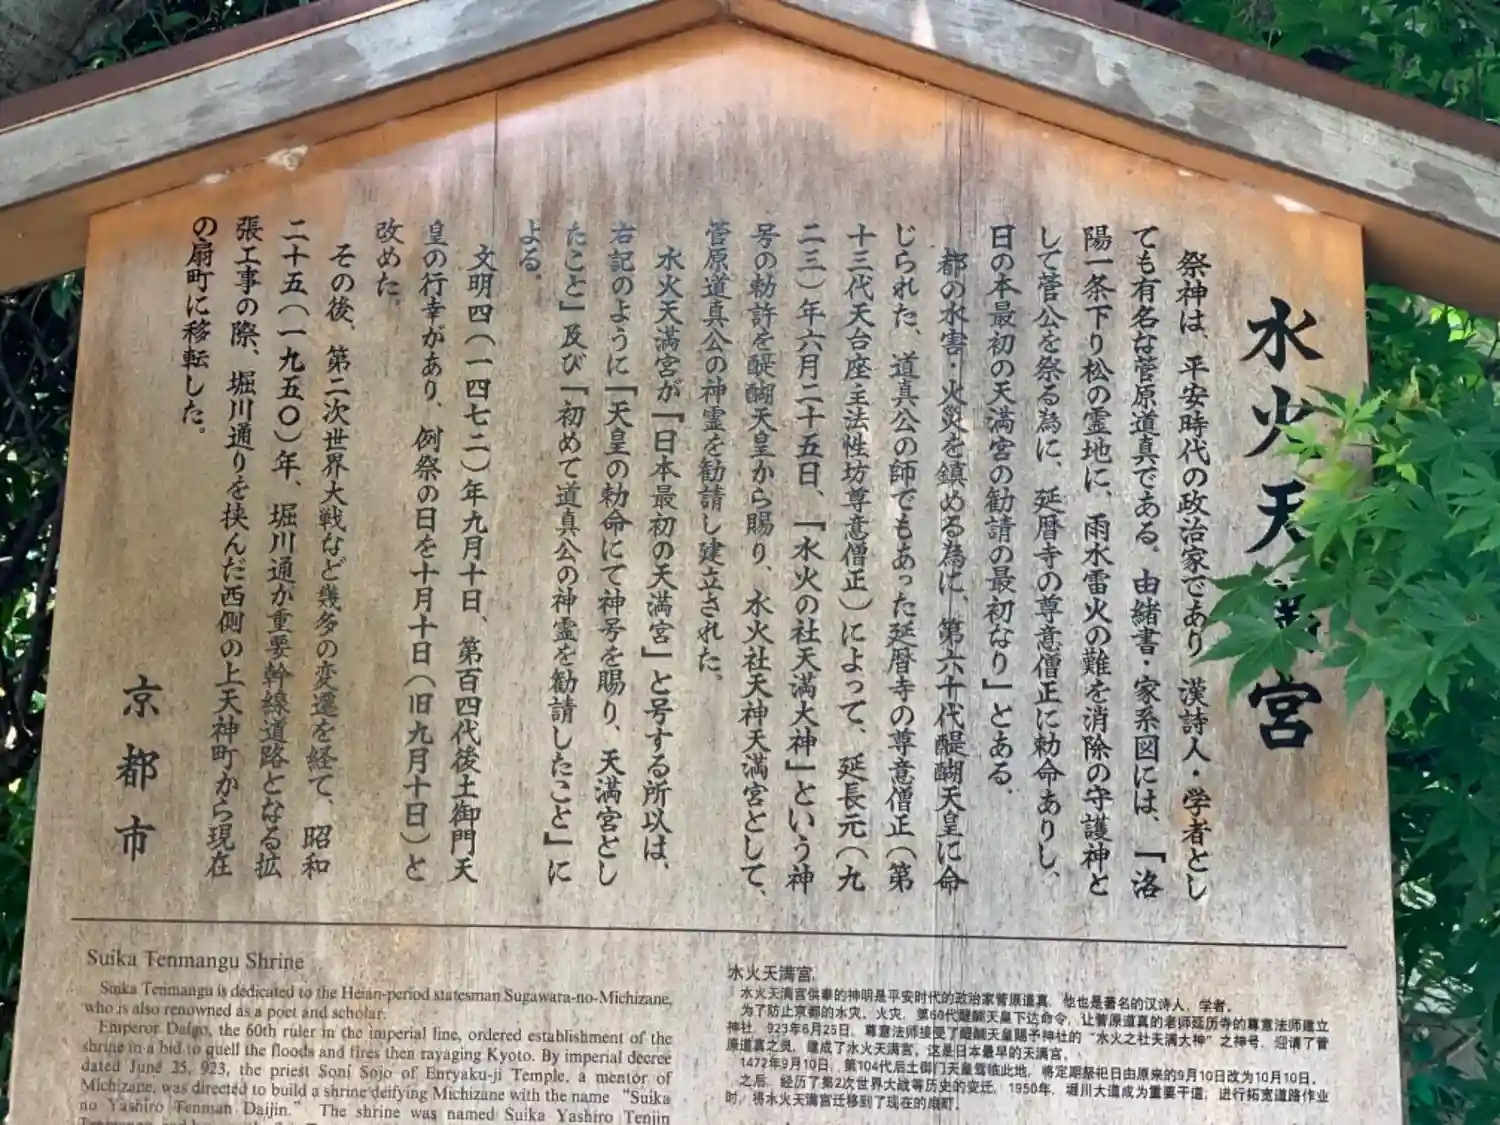 水火天満宮
祭神は、平安時代の政治家であり、漢詩人・学者とし
ても有名な菅原道真である。由緒書・家系図には、「洛
陽一条下り松の霊地に、雨水雷火の難を消除の守護神と
して菅公を祭る為に、延暦寺の尊意僧正に勅命ありし、
日の本最初の天満宮の勧請の最初なり」とある。
都の水害・火災を鎮める為に、第六十代醍醐天皇に命
じられた、道真公の師でもあった延暦寺の尊意僧正(第
十三代天台座主法性坊尊意僧正)によって、延長元(九
二三)年六月二十五日、「水火の社天満大神」という神
号の勅許を醍醐天皇から賜り、水火社天神天満宮として、
菅原道真公の神霊を勧請し建立された。
水火天満宮が「日本最初の天満宮」と号する所以は、
右記のように「天皇の勅命にて神号を賜り、天満宮とし
たこと」及び「初めて道真公の神霊を勧請したこと」に
よる。
文明四(一四七二)年九月十日、第百四代後土御門天
皇の行幸があり、例祭の日を十月十日(旧九月十日)と
改めた。
その後、第二次世界大戦など幾多の変遷を経て、昭和
二十五(一九五〇)年、堀川通が重要幹線道路となる拡
張工事の際、堀川通りを挟んだ西側の上天神町から現在
の扇町に移転した。
京都市
Suika Tenmangu Shrine
Suika Tenmangu is dedicated to the Heian-period statesman Sugawara-no-Michizane,
who is also renowned as a poet and scholar.
Emperor Daigo, the 60th ruler in the imperial line, ordered establishment of the
shrine in a bid to quell the floods and fires then ravaging Kyoto. By imperial decree
dated June 25, 923, the priest Soni Sojo of Enryaku-ji Temple, a mentor of
Michizane, was directed to build a shrine deifying Michizane with the name "Suika
no Yashiro Tenman Daijin." The shrine was named Suika Yashiro Tenjin
水火天满宫
水火天满宫供奉的神明是平安时代的政治家菅原道真，他也是著名的汉诗人、学者。
为了防止京都的水灾、火灾，第60代醍醐天皇下达命令，让菅原道真的老师延历寺的尊意法师建立
神社。923年6月25日，尊意法师接受了醍醐天皇赐予神社的“水火之社天满大神”之神号，迎请了菅
原道真之灵，建成了水火天满宫。这是日本最早的天满宫。
1472年9月10日，第104代后土御门天皇驾临此地，将定期祭祀日由原来的9月10日改为10月10日。
之后，经历了第2次世界大战等历史的变迁，1950年，堀川大道成为重要干道，进行拓宽道路作业
时，将水火天满宫迁移到了现在的扇町。